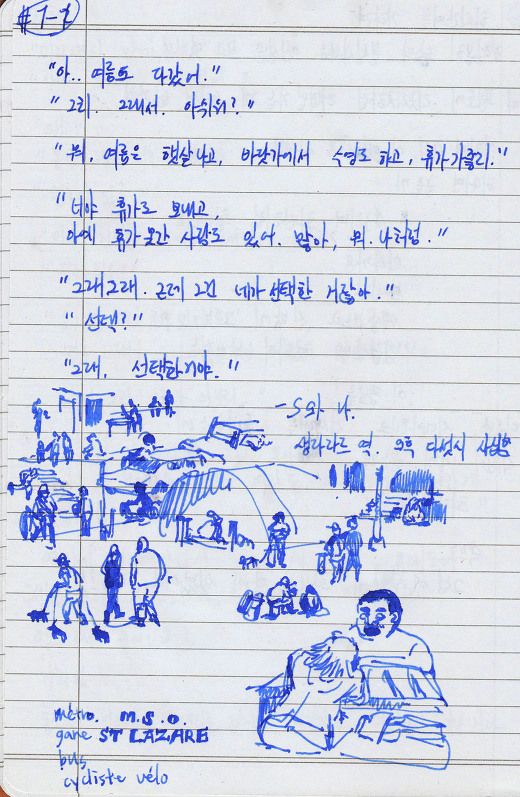 #1-2
"아.. 여름도 다 갔어."
"그러. 그래서. 아쉬워?"
"뭐, 여름은 햇살나고, 바닷가에서 수영도 하고, 휴가가 좋지."
"너야 휴가도 보내고,
아예 휴가 못간 사람도 있어. 많아, 뭐. 나처럼."
"그래그래. 근데 그건 네가 선택한 거잖아."
"선택?"
"그래, 선택한거야."
-S와 나.
생라자르 역. 오후 다섯시 사십분
métro. m.s.o.
gare ST LAZARE
bus
cycliste vélo